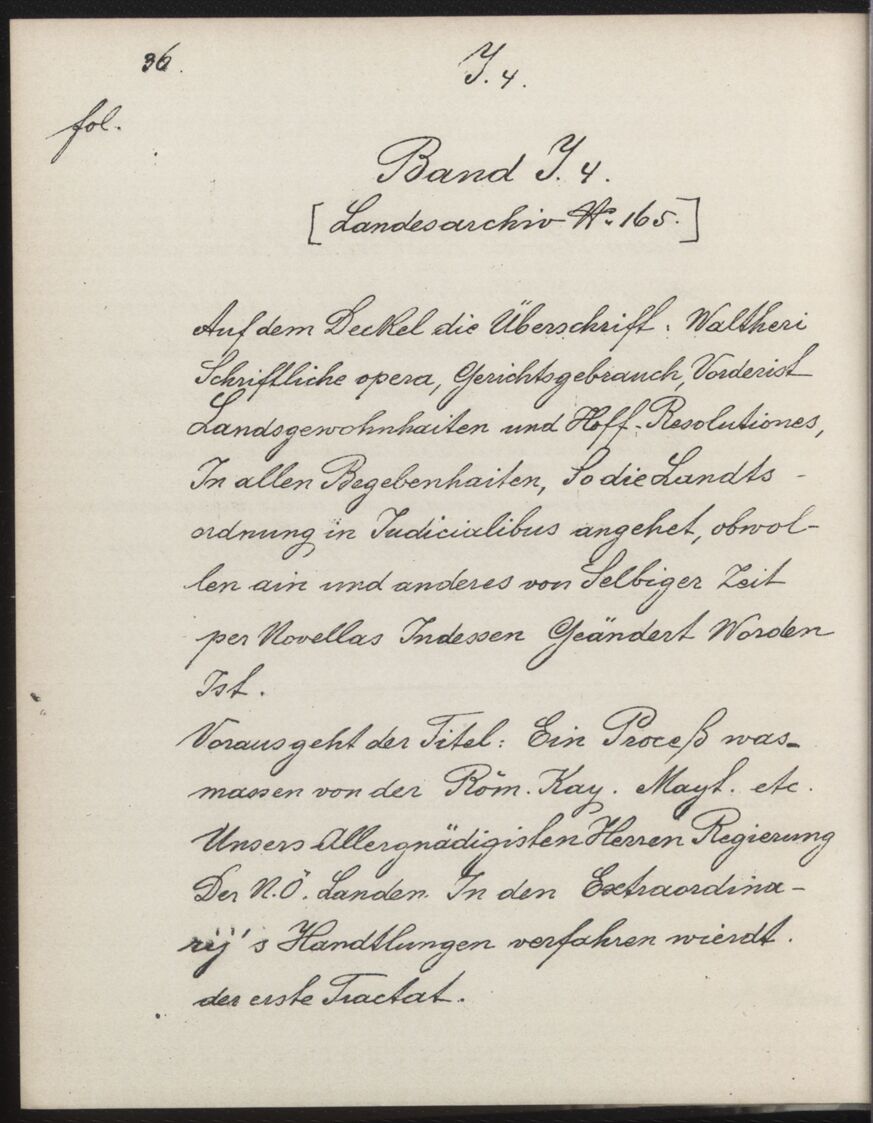 36.
J. 4.
fol.
Band J. 4.
[Landesarchiv No. 165.]
Auf dem Deckel die Überschrift: Waltheri
Schriftliche opera, Gerichtsgebrauch, Vorderist
Landsgewohnhaiten und Hoff-Resolutiones,
In allen Begebenhaiten, So die Landts-
ordnung in Iudicialibus angehet, obwol-
len ain und anderes von Selbiger Zeit
per Novellas Indessen Geändert Worden
Ist.
Vorausgeht der Titel: Ein Proceß was-
massen von der Röm. Kay. Mayt. etc.
Unsers Allergnädigisten Herren Regierung
Der N.Ö. Landen In den Extraordina-
rij's Handtlungen verfahren wierdt.
der erste Tractat.